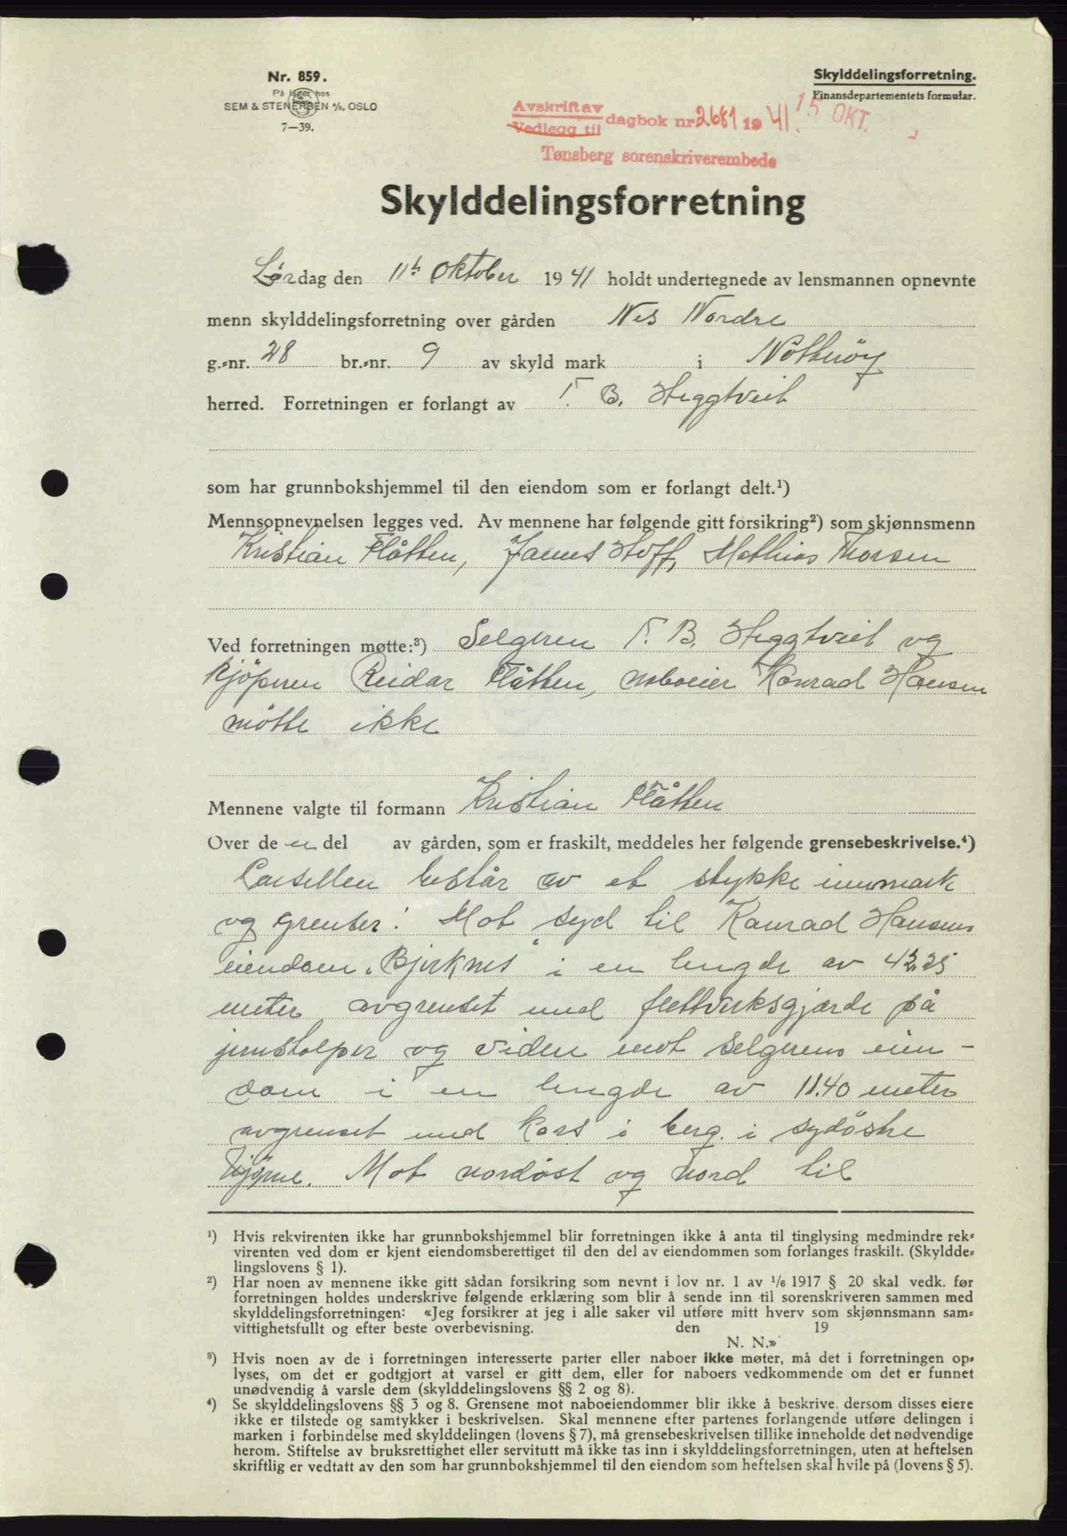 Nr. 859.
På lager hos
SEM & STENERSEN A/S, OSLO
7—39.
Skylddelingsforretning.
Finansdepartementets formular.
Avskrift av
Vedlegg til
dagbok nr 2681 19 41. 15 OKT.
Tønsberg sorenskriverembede
Skylddelingsforretning
Lørdag den 11te Oktober 1941 holdt undertegnede av lensmannen opnevnte
menn skylddelingsforretning over gården Nes Nordre
g.-nr. 28 br.-nr. 9 av skyld mark i Nøtterøy
herred. Forretningen er forlangt av T. B. Heggtveit
som har grunnbokshjemmel til den eiendom som er forlangt delt.¹)
Mennsopnevnelsen legges ved. Av mennene har følgende gitt forsikring²) som skjønnsmenn
Kristian Flåtten, James Hoff, Mathias Thorsen
Ved forretningen møtte:³) Selgeren T. B. Heggtveit og
kjöperen Reidar Flåtten, naboeier Konrad Hansen
mötte ikke
Mennene valgte til formann Kristian Flåtten
Over de en del av gården, som er fraskilt, meddeles her følgende grensebeskrivelse.⁴)
Parsellen består av et stykke innmark
og grenser: Mot syd til Konrad Hansens
eiendom „Bjerknes" i en lengde av 43,25
meter avgrenset med flettverksgjærde på
jernstolper og videre mot selgerens eien-
dom i en lengde av 11.40 meter
avgrenset med kors i berg i sydöstre
hjörne. Mot nordöst og nord til
¹) Hvis rekvirenten ikke har grunnbokshjemmel blir forretningen ikke å anta til tinglysing medmindre rek-
virenten ved dom er kjent eiendomsberettiget til den del av eiendommen som forlanges fraskilt. (Skyldde-
lingslovens § 1).
²) Har noen av mennene ikke gitt sådan forsikring som nevnt i lov nr. 1 av ¹/₆ 1917 § 20 skal vedk. før
forretningen holdes underskrive følgende erklæring som blir å sende inn til sorenskriveren sammen med
skylddelingsforretningen: «Jeg forsikrer at jeg i alle saker vil utføre mitt hverv som skjønnsmann sam-
vittighetsfullt og efter beste overbevisning. den 19
N. N.»
³) Hvis noen av de i forretningen interesserte parter eller naboer ikke møter, må det i forretningen op-
lyses, om det er godtgjort at varsel er gitt dem, eller for naboers vedkommende om det er funnet
unødvendig å varsle dem (skylddelingslovens §§ 2 og 8).
⁴) Se skylddelingslovens §§ 3 og 8. Grensene mot naboeiendommer blir ikke å beskrive, dersom disses eiere
ikke er tilstede og samtykker i beskrivelsen. Skal mennene efter partenes forlangende utføre delingen i
marken i forbindelse med skylddelingen (lovens § 7), må grensebeskrivelsen tillike inneholde det nødvendige
herom. Stiftelse av bruksrettighet eller servitutt må ikke tas inn i skylddelingsforretningen, uten at heftelsen
skriftlig er vedtatt av den som har grunnbokshjemmel til den eiendom som heftelsen skal hvile på (lovens § 5).